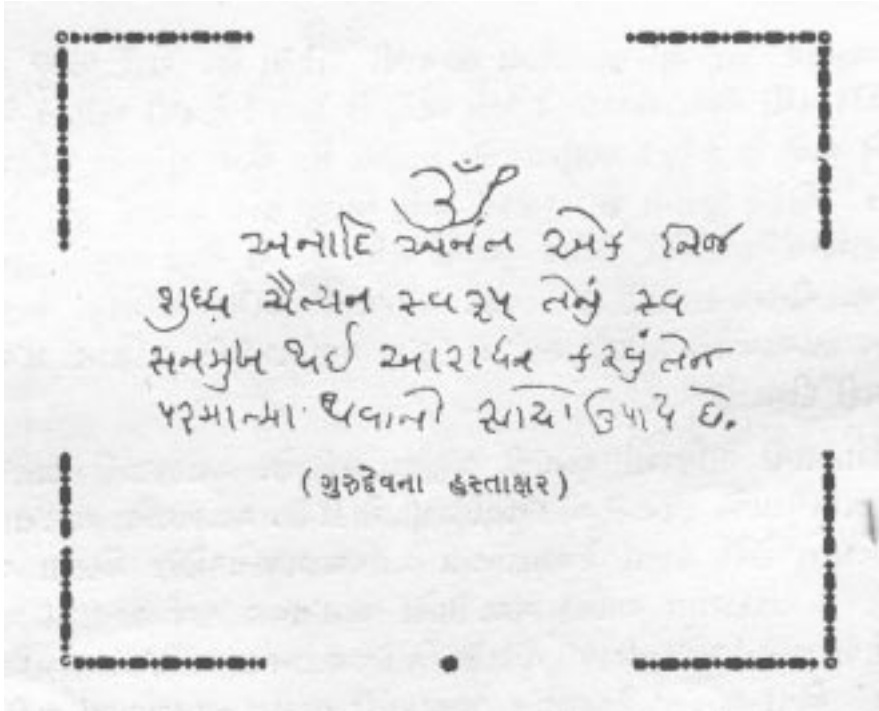 ॐ
અનાદિ અનંત એક નિજ
શુધ્ધ ચૈત્યન સ્વ રૂપ તેનું સ્વ
સનમુખ થઈ આરાધન કરવું તેજ
પરમાત્મા થવાનો સાચો ઉપાય છે.
(ગુરુદેવના હસ્તાક્ષર)